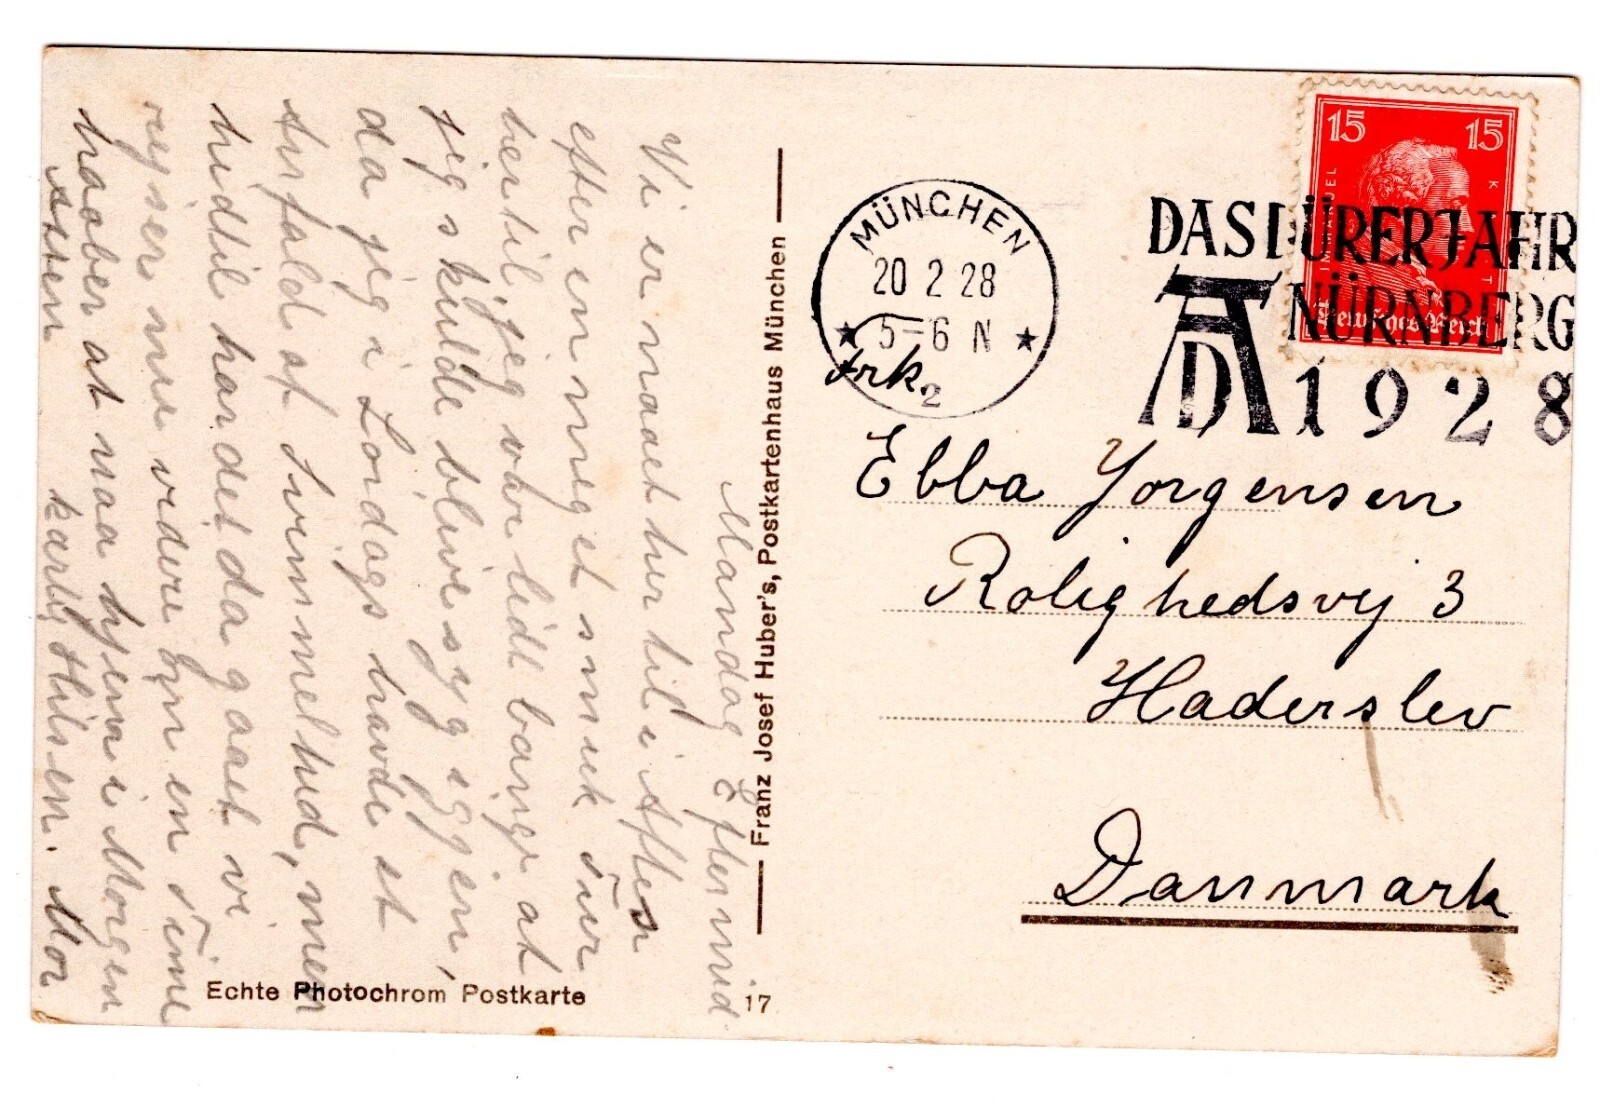 Mandag Eftermid
Vi er naaet her til i Aften
efter en meget smuk Tur
hertil, jeg var lidt bange at
jeg skulde blive syg igjen,
da jeg i Lordags havde et
Anfald af Svimmelhed, men
hidtil har det da gaaet vi
rejser nu videre om en Time
haaber at naa hjem i Morgen
Aften kærlig Hilsen. Mor
Franz Josef Huber's, Postkartenhaus München
Echte Photochrom Postkarte
17
MÜNCHEN
20 2 28
5-6 N
2
DAS DÜRERJAHR
NÜRNBERG
AD 1928
15 15
Deutsches Reich
Frk.
Ebba Jorgensen
Rolighedsvej 3
Haderslev
Danmark